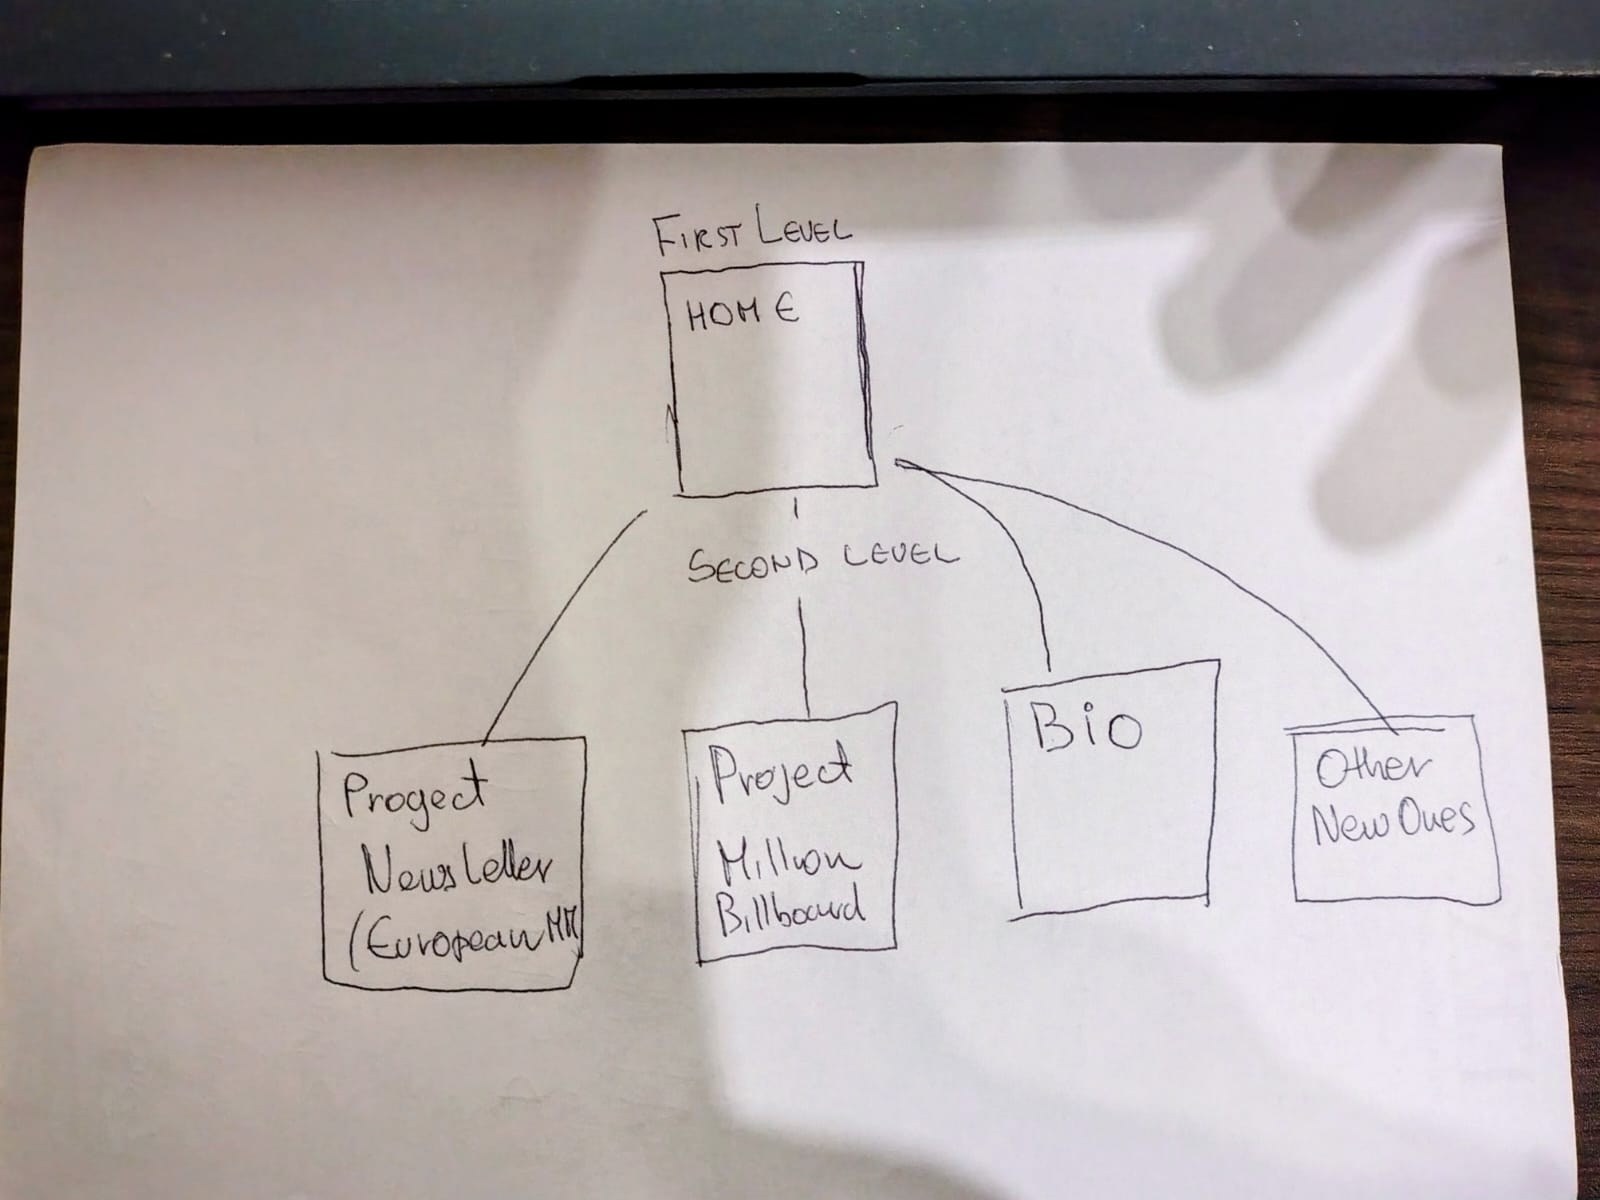 FIRST LEVEL
HOME
SECOND LEVEL
Progect
NewsLetter
(European MM
Project
Million
Billboard
Bio
Other
New Ones